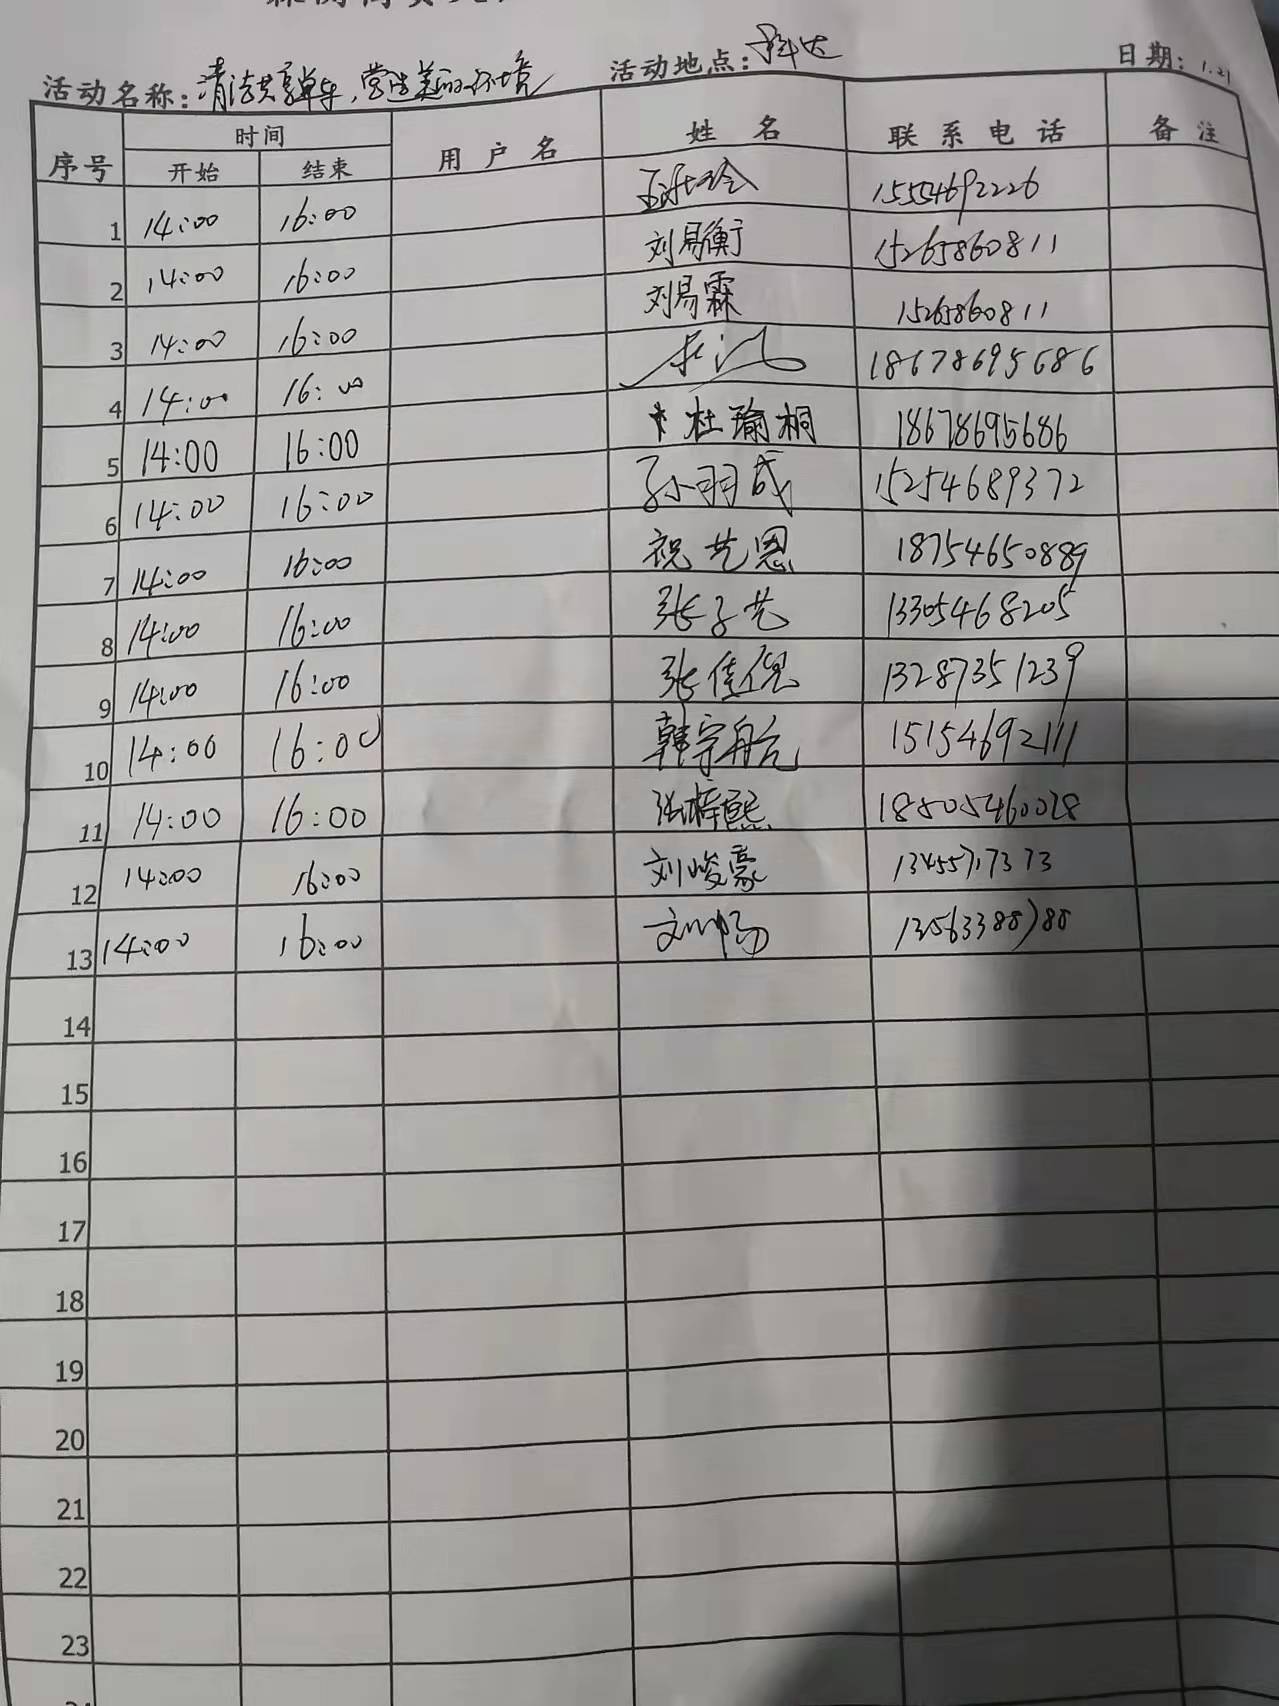 活动名称：清洁共享单车，营造美的环境 活动地点：科达 日期：1.21
序号 时间 用户名 姓名 联系电话 备注
开始 结束
1 14:00 16:00 15554692226
2 14:00 16:00 刘易衡 15265860811
3 14:00 16:00 刘易霖 15265860811
4 14:00 16:00 18678695686
5 14:00 16:00 杜瑜桐 18678695686
6 14:00 16:00 孙羽成 15254689372
7 14:00 16:00 祝艺恩 18754650889
8 14:00 16:00 张子艺 13305468205
9 14:00 16:00 张佳倪 13287351239
10 14:00 16:00 韩宗航 15154692111
11 14:00 16:00 张梓熙 18805460028
12 14:00 16:00 刘峻豪 13455717373
13 14:00 16:00 刘畅 13563388788
14
15
16
17
18
19
20
21
22
23